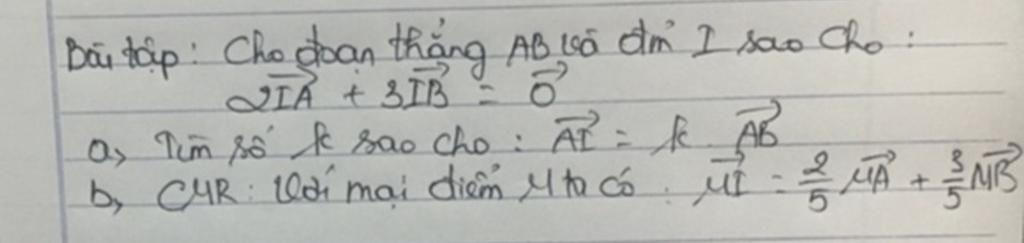 Bài tập: Cho đoạn thẳng AB và đm̉ I sao cho:
2\overrightarrow{IA} + 3\overrightarrow{IB} = \overrightarrow{0}
a, Tìm số k sao cho: \overrightarrow{AI} = k \overrightarrow{AB}
b, CMR: Với mọi điểm M ta có. \overrightarrow{MI} = \frac{2}{5} \overrightarrow{MA} + \frac{3}{5} \overrightarrow{MB}